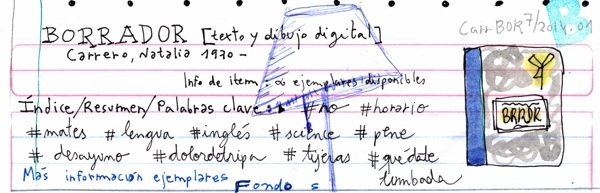 CarrBOR7/2014.01
BORRADOR [texto y dibujo digital]
Carrero, Natalia 1970 -
Info de item: ∞ ejemplares disponibles
BRRDR
Índice/Resumen/Palabras clave: #no #horario
#mates #lengua #inglés #science #pene
#desayuno #dolordetripa #tijeras #quédate
tumbada
Más información ejemplares Fondos